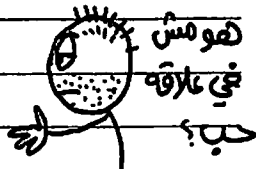 هو مش
في علاقه
حب؟